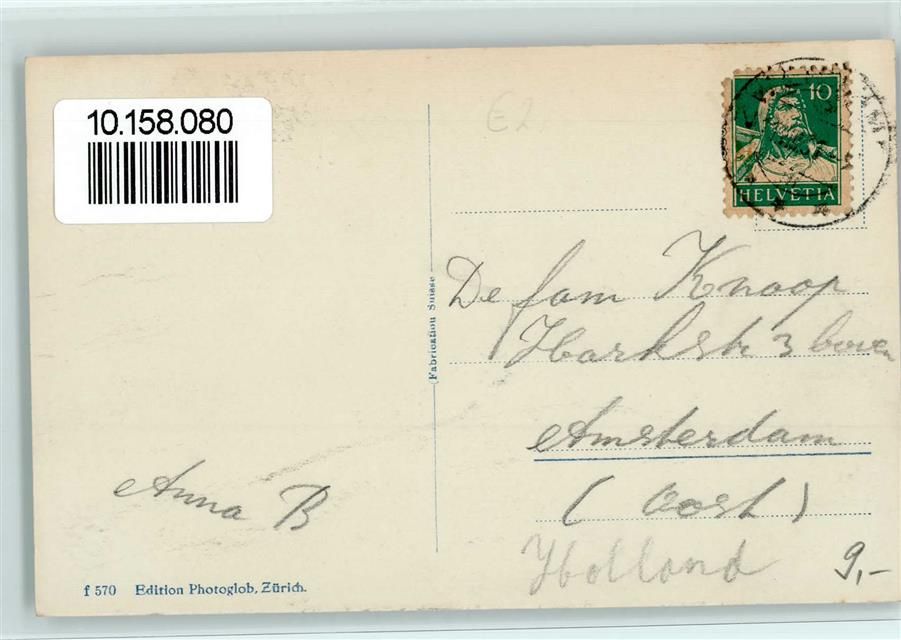 10.158.080
E2
10
HELVETIA
(Fabrication Suisse
De fam Knoop
3 boven
Amsterdam
(Oost)
Holland
Anna B
9,-
f 570 Edition Photoglob, Zürich.